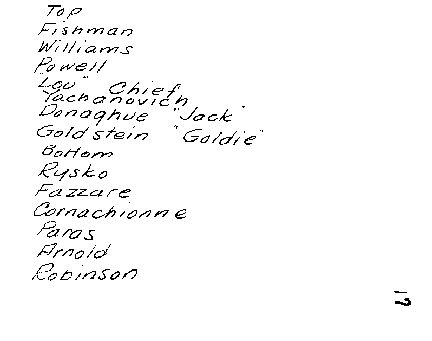 Top
Fishman
Williams
Powell
Lou " Chief
Yachanovich
Donaghue "Jack"
Goldstein "Goldie"
Bottom
Rysko
Fazzare
Cornachionne
Paras
Arnold
Robinson